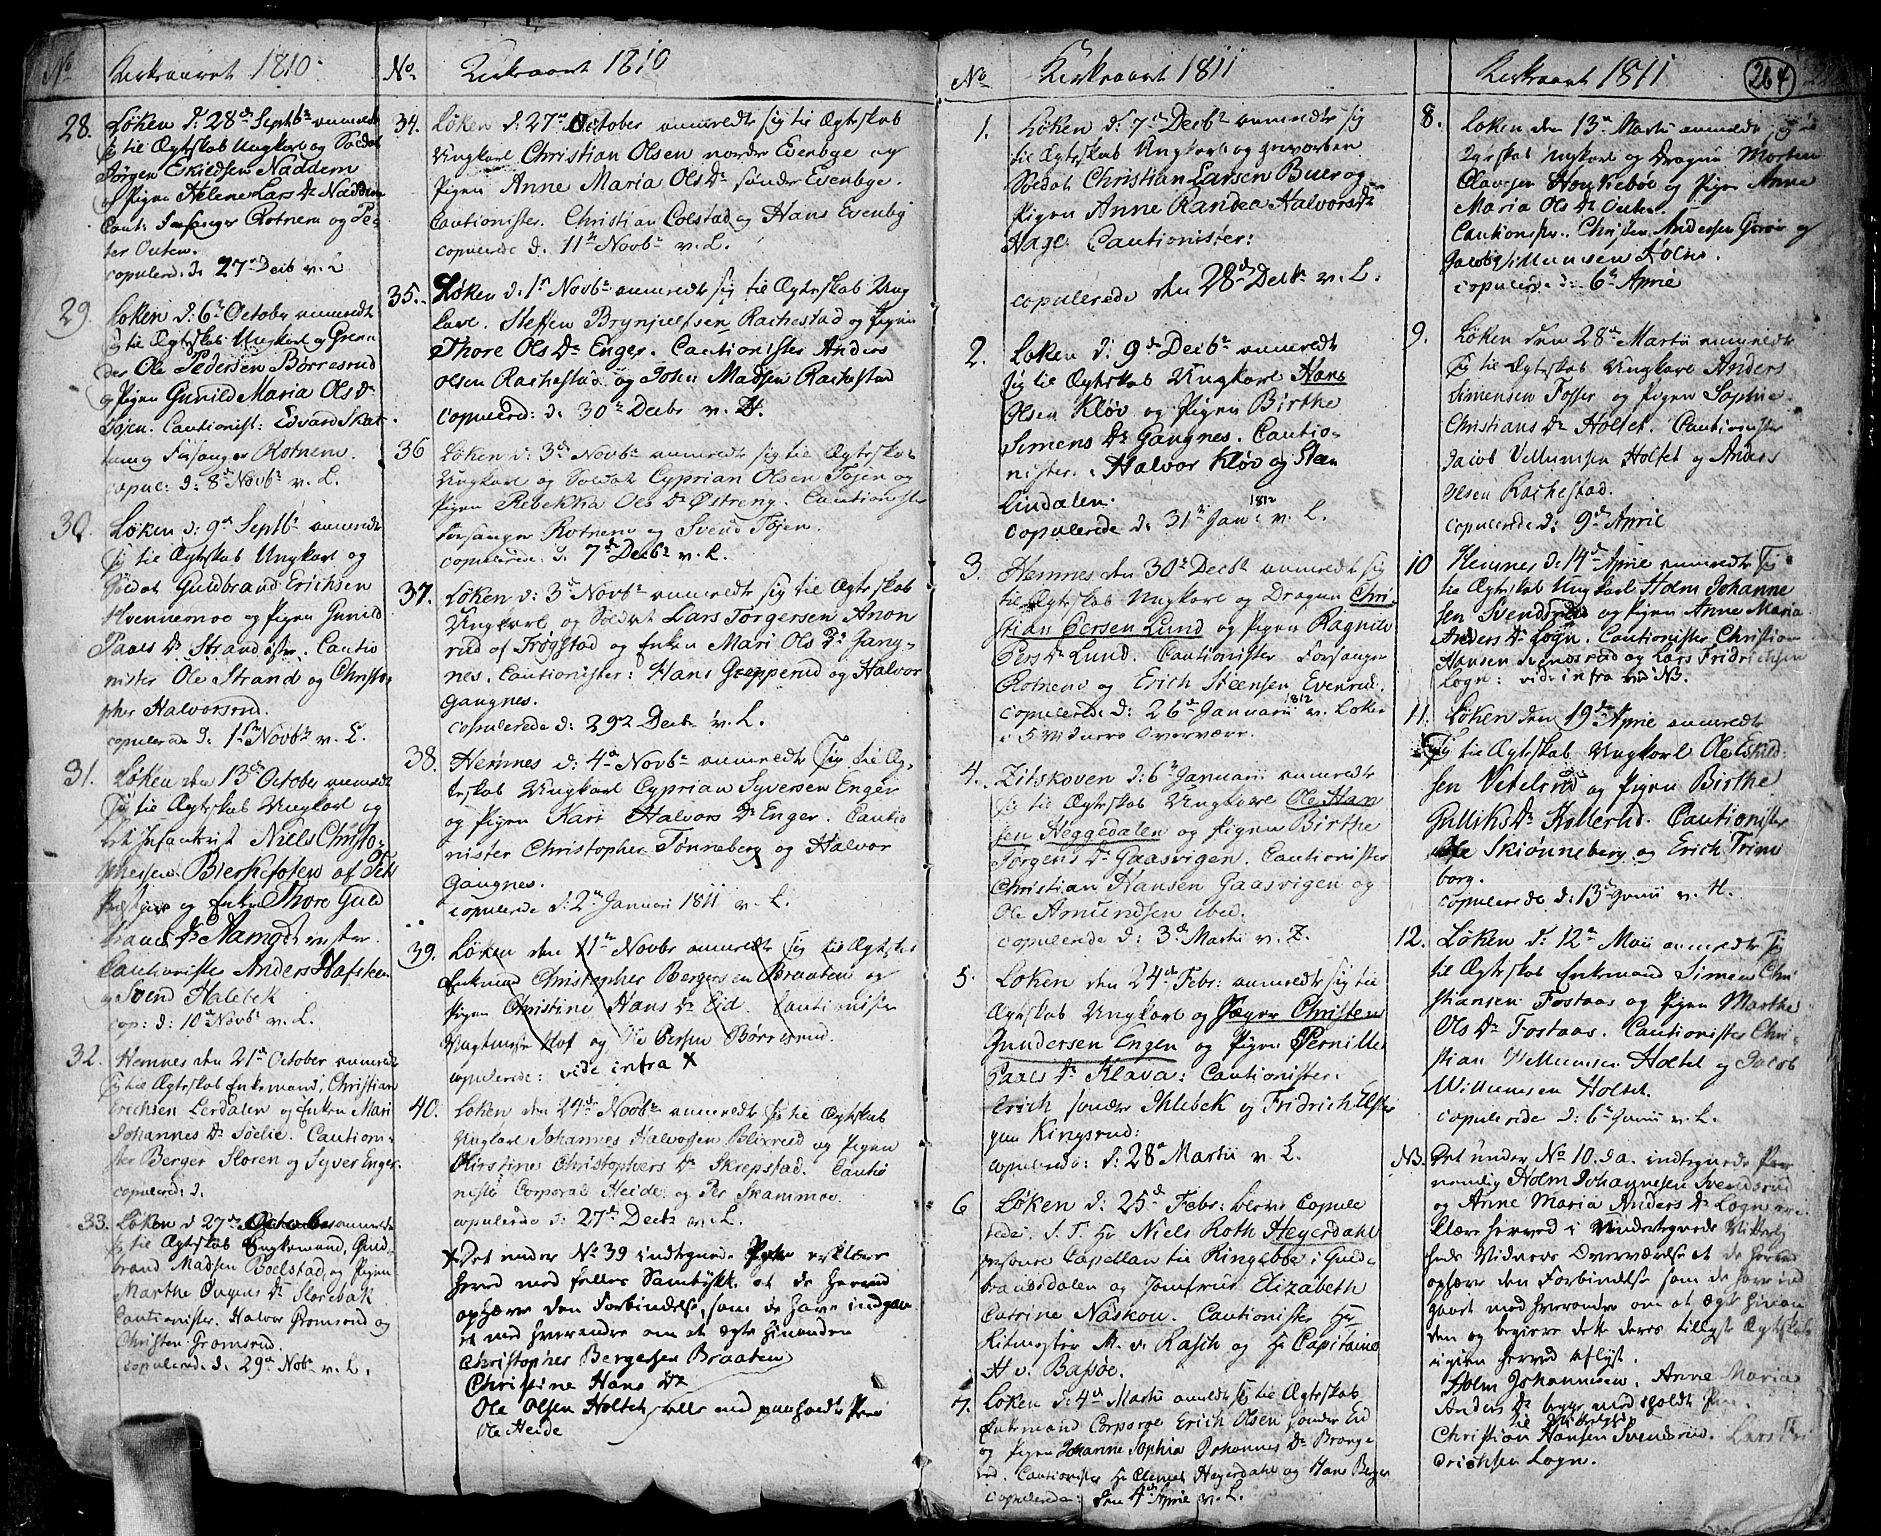 No Kirkeaaret 1810
28. Løken d: 28de Septbr anmeldte
sig til Ægteskab Ungkarl og Soldat
Jørgen Erichsen Naddem
og Pigen Helene Lars Dr Naddem
Caut: Forsanger Rotnem og Pe-
ter Outen.
copulered: d: 27de Decb v. L
29. Løken d: 6te October anmeldte
sig til Ægteskab Ungkarl og Grena-
der Ole Pedersen Børresrud
og Pigen Gunild Maria Ols Dr
Tøjen. Cautionist: Edvard Skat-
Forsanger Rotnem.
copul: d: 8de Novbr v. L.
30. Løken d: 9de Septbr anmeldte
sig til Ægteskab Ungkarl og
Soldat Guldbrand Erichsen
Hvennemoe og Pigen Gunild
Paals Dr Strand østre. Cautio
nister Ole Strand og Christo-
pher Halvorsrud.
copulerede d: 1ste Novbr v. L.
31. Løken den 13de October anmeldte
sig til Ægteskab Ungkarl og
Infanterist Niels Christo-
phersen Bierkefoten af
og Enke Thore Guld
brands Dr
Cautionister Anders Hafsteen
og Svend Halebek
cop: d: 10de Novbr v. L.
32. Hemnes den 21de October anmeldte
sig til Ægteskab Enkemand Christian
Erichsen Lerdalen og Enken Mari
Johannes Dr Søelie. Cautioni-
ster Berger Sloren og Syver Enger.
copulered: d.
33. Løken d 27de October anmeldte
sig til Ægteskab Enkemand Guld-
brand Madsen Boelstad og Pigen
Marthe Dr Slorebak
Cautionister. Halvor Gromsrud og
Christen Gromsrud.
copulered: d. 29de Nobr v. L.
No Kirkeaaret 1810
34. Løken d: 27de October anmeldte sig til Ægteskab
Ungkarl Christian Olsen nordre Evenbye og
Pigen Anne Maria Ols Dr søndre Evenbye.
Cautionister. Christian Colstad og Hans Evenby
copulerede d: 11te Novbr v. L.
35. Løken d: 1ste Novbr anmeldte sig til Ægteskab Ung
karl. Steffen Brynjelfsen Rachestad og Pigen
Thore Ols Dr Enger. Cautionister Anders
Olsen Rachestad og John Madsen Rachestad
copulered: d. 30te Decbr v. H.
36 Løken d: 3de Novbr anmeldte sig til Ægteskab
Ungkarl og Soldat Cyprian Olsen Tøjen og
Pigen Rebekka Ols Dr Østreng. Cautionister
Forsanger Rotnem og Svend Tøjen.
copulerede d. 7de Decbr v. L.
37. Løken d: 3de Novbr anmeldte sig til Ægteskab
Ungkarl og Soldat Lars Torgersen Anon
rud af Trøgstad og Enken Mari Ols Dr Gang-
nes. Cautionister: Hans Grepperud og Halvor
Gangnes.
copulerede d: 29de Decbr v. L.
38. Hemnes d: 4de Novbr anmeldte sig til Æg-
teskab Ungkarl Cyprian Syversen Enger
og Pigen Kari Halvors Dr Enger. Cautio
nister Christopher Tønneberg og Halvor
Gangnes.
copulerede d. 2den Januari 1811 v. L.
39. Løken den 11te Novbr anmeldte sig til Ægteskab
Enkemand Christopher Bergersen Braaten og
Pigen Christine Hans Dr Eid. Cautionister
Vagtmester Hof og Ole Persen Børresrud.
copulerede: vide infra X
40. Løken den 24de Novbr anmeldte sig til Ægteskab
Ungkarl Johannes Halvorsen Blixrud og Pigen
Kirstine Christophers Dr Skrepstad. Cautio
nister Corporal Heide og Per Skammoe.
copulerede d: 27de Decbr v. L.
X Det under No 39 indtegnede Par erklærer
herved med fælles Samtykke at de herved
ophæve den Forbindelse, som de have indgaa
et med hverandre om at ægte hinanden
Christopher Bergersen Braaten
Christine Hans Dr
Ole Olsen Holtet alle med paaholdt Pen
Ole Heide
No Kirkeaaret 1811
1. Løken d: 7de Decbr anmeldte sig
til Ægteskab Ungkarl og geworben
Soldat Christian Larsen Buer og
Pigen Anne Randea Halvors Dr
Hage. Cautionister:
copulerede den 28de Decbr v. L.
2. Løken d: 9de Decbr anmeldte
sig til Ægteskab Ungkarl Hans
Olsen Kløv og Pigen Birthe
Simens Dr Gangnes. Cautio-
nister. Halvor Kløv og Sten
Lindalen.
copulerede d: 31te Jan: 1812 v. L.
3. Hemnes den 30te Decbr anmeldte sig
til Ægteskab Ungkarl og Dragon Chri-
stian Persen Lund og Pigen Ragnild
Pers Dr Lund. Cautionister Forsanger
Rotnem og Erich Steensen Evenrud.
copulerede d: 26de Januarii 1812 v. Løken
i 5 Vidners Overvære.
4. Zitskoven d: 6te Januari anmeldte
sig til Ægteskab Ungkarl Ole Han
sen Heggedalen og Pigen Birthe
Jørgens Dr Gaasvigen. Cautionister
Christian Hansen Gaasvigen og
Ole Amundsen ibid.
copulerede d: 3de Martii v. Z.
5. Løken den 24de Febr: anmeldte sig til
Ægteskab Ungkarl og Jæger Christen
Gundersen Engen og Pigen Pernille
Paals Dr Klava: Cautionister.
Erich søndre Ihlebek og Fridrich
Kingsrud:
copulered: d: 28de Martii v. L.
6 Løken d: 25de Febr: bleve Copule
rede. S. T. Hr Niels Roth Heyerdahl
personel Capellan til Ringeboe i Guld-
brandsdalen og Jomfrue Elizabeth
Catrine Naskou. Cautionister Hr
Ritmester M. v. Rasch og Hr Capitaine
H v: Bassøe.
7. Løken d. 4de Martii anmeldte sig til Ægteskab
Enkemand Corporal Erich Olsen søndre Eid
og Pigen Johanne Sophia Johannes Dr Brange
rud. Cautionister Hr Clemet Heyerdahl og Hans Berger
copulerede: den 4de Aprile v. L.
Kirkeaaret 1811
264
8. Løken den 13de Martii anmeldte sig til
Ægteskab Ungkarl og Dragon Morten
Olavesen Haukebøe og Pigen Anne
Maria Ols Dr Outen.
Cautionister. Christen Andersen og
Jacob Willumsen Holtet.
copulerede d: 6te Aprile
9. Løken den 28de Martii anmeldte
sig til Ægteskab Ungkarl Anders
Simensen Fosser og Pigen Sophie
Christians Dr Holtet. Cautionister
Jacob Vellumsen Holtet og Anders
Olsen Rachestad.
copulerede d: 9de Aprile
10 Hemnes d. 14de Aprile anmeldte sig
til Ægteskab Ungkarl Holm Johanne
sen Svendsrud og Pigen Anne Maria
Anders Dr Logn. Cautionister Christian
Hansen Svendsrud og Lars Fridrichsen
Logn: vide infra ved NB.
11. Løken den 19de Aprile anmeldte
sig til Ægteskab Ungkarl Ole Eskild-
sen Vetelsrud og Pigen Birthe
Gulliks Dr Kollerud. Cautionister
Ole Skiønneberg og Erich Trim
borg.
copulerede d: 13de Junii v. H.
12. Løken d: 12te Maii anmeldte sig
til Ægteskab Enkemand Simen Chri
stiansen Fostaas og Pigen Marthe
Ols Dr Fostaas. Cautionister Chri-
stian Willumsen Holtet og Jacob
Willumsen Holtet.
copulerede d: 6te Junii v. L.
NB. Det under No 10. d.a. indtegnede Par
nemlig Holm Johannesen Svendsrud
og Anne Maria Anders Dr Logn er-
klære herved i Undertegnede Vitterlig-
heds Vidners Overværelse at de herved
ophæve den Forbindelse som de have ind
gaaet med hverandre om at ægte hinan
den og begiere dette deres tillyste Ægteskab
igien herved aflyst.
Holm Johannesen. Anne Maria
Anders Dr begge med iholdt Pen.
Til Vitterlighed
Christian Hansen Svendsrud. Lars Fri
drichsen Logn.